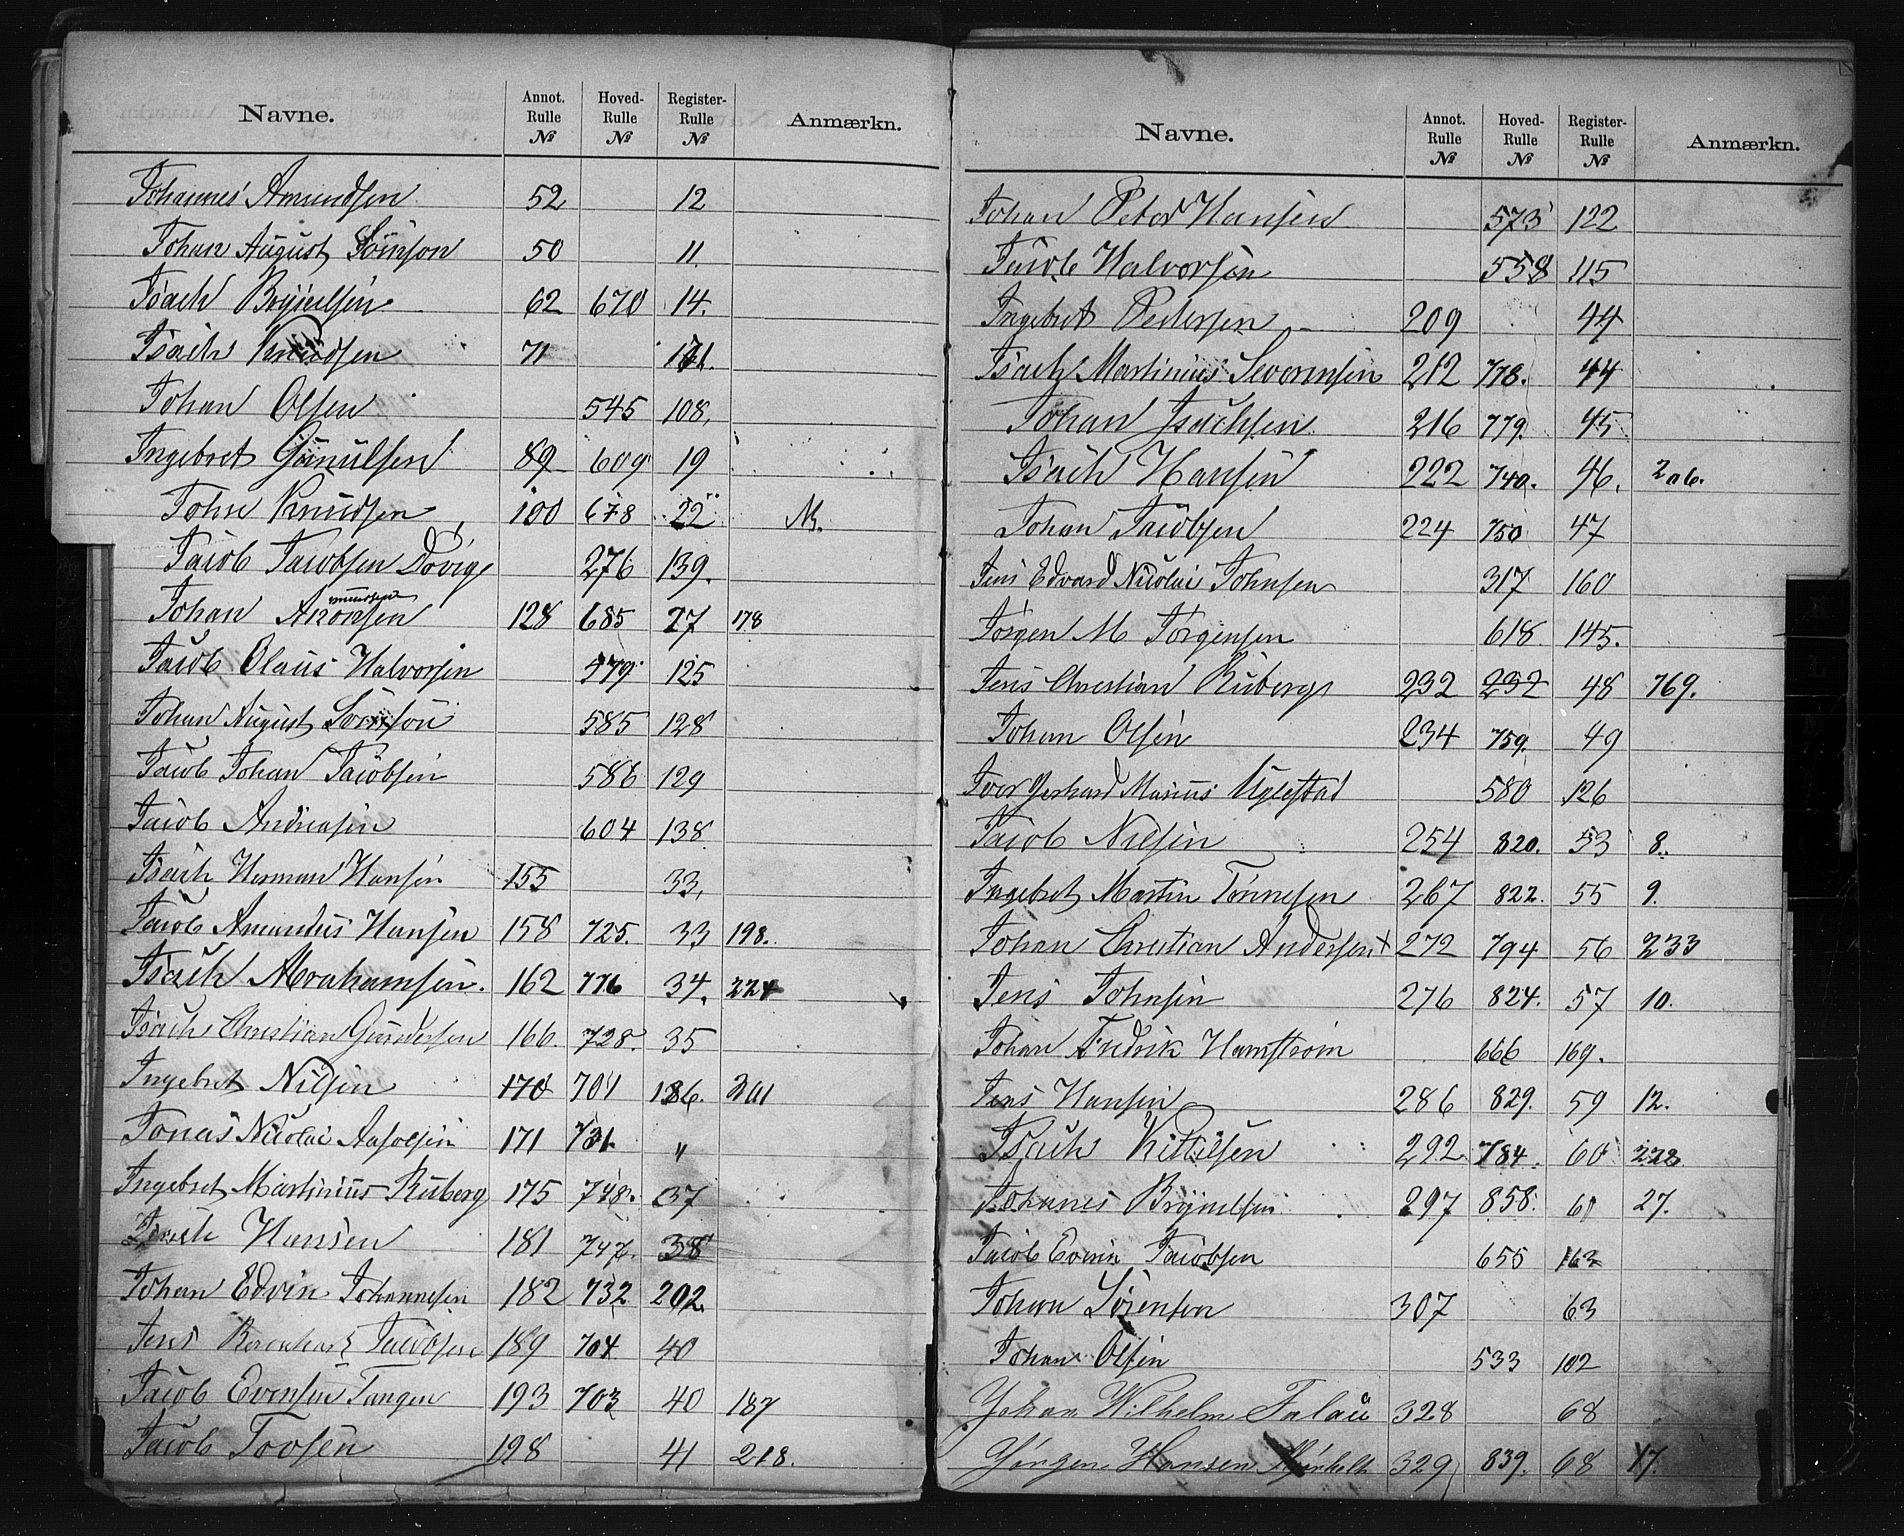 Navne. Annot. Rulle № Hoved- Rulle № Register- Rulle № Anmærkn.
Johannes Amundsen 52 12
Johan August Sörnson 50 11.
Isach Brynelsen 62 670 14.
Isach Knudsen 71
Johan Olsen 545 108.
Ingebret Gunulsen 89 609 19
John Knudsen 100 678 22
Jacob Jacobsen Dövig 276 139.
Johan 128 685 27 178
Jacob Olaus Halvorsen 579 125
Johan August 585 128
Jacob Johan Jacobsen 586 129
Jacob Andreasen 604 138
Isach Herman Hansen 155 33.
Jacob Amandus Hansen 158 725. 33 198.
Isach Abrahamsen. 162 776 34. 224
Isach Christian Gundersen 166. 728. 35
Ingebret Nilsen 170 701 136. 201
Jonas Nicolai 171 731. "
Ingebret Martinius Ruberg 175 748. 37
Isach Hansen 181 747. 38
Johan Edvin Johannesen 182 732 202
Jens Bernhard Jacobsen 189 704 40
Jacob Evensen Tangen 193 703 40 187
Jacob Tovsen 198 41 218.
Navne. Annot. Rulle № Hoved- Rulle № Register- Rulle № Anmærkn.
Johan Peter Hansen 573 122
Jacob Halvorsen 558 115
Ingebret Pedersen 209 44
Isach Martinius Severinsen 212 778. 44
Johan Isachsen 216 779. 45
Isach Hansen 222 740. 46. 206.
Johan Jacobsen 224 750 47
Jens Edvard Nicolai Johnsen 317 160
Jörgen M Jörgensen 618. 145.
Jens Christian Ruberg 232 232 48 769.
Johan Olsen 234 759. 49
Iver Gerhard Marius Uglestad 580 126
Jacob Nilsen 254 820. 53 8.
Ingebret Martin Tönnesen 267 822. 55 9.
Johan Christian Andersen + 272 794 56 233
Jens Johnsen 276 824. 57 10.
Johan Fredrik Hamström 666 169.
Jens Hansen 286 829. 59 12.
Isach Kittilsen 292 784. 60 222
Johannes Brynelsen 297 858. 61 27.
Jacob Evein Jacobsen 655 163
Johan Sörenson 307 63
Johan Olsen 533 102
Johan Wilhelm Falau 328 68
Jörgen Hansen 329 839. 68 17.